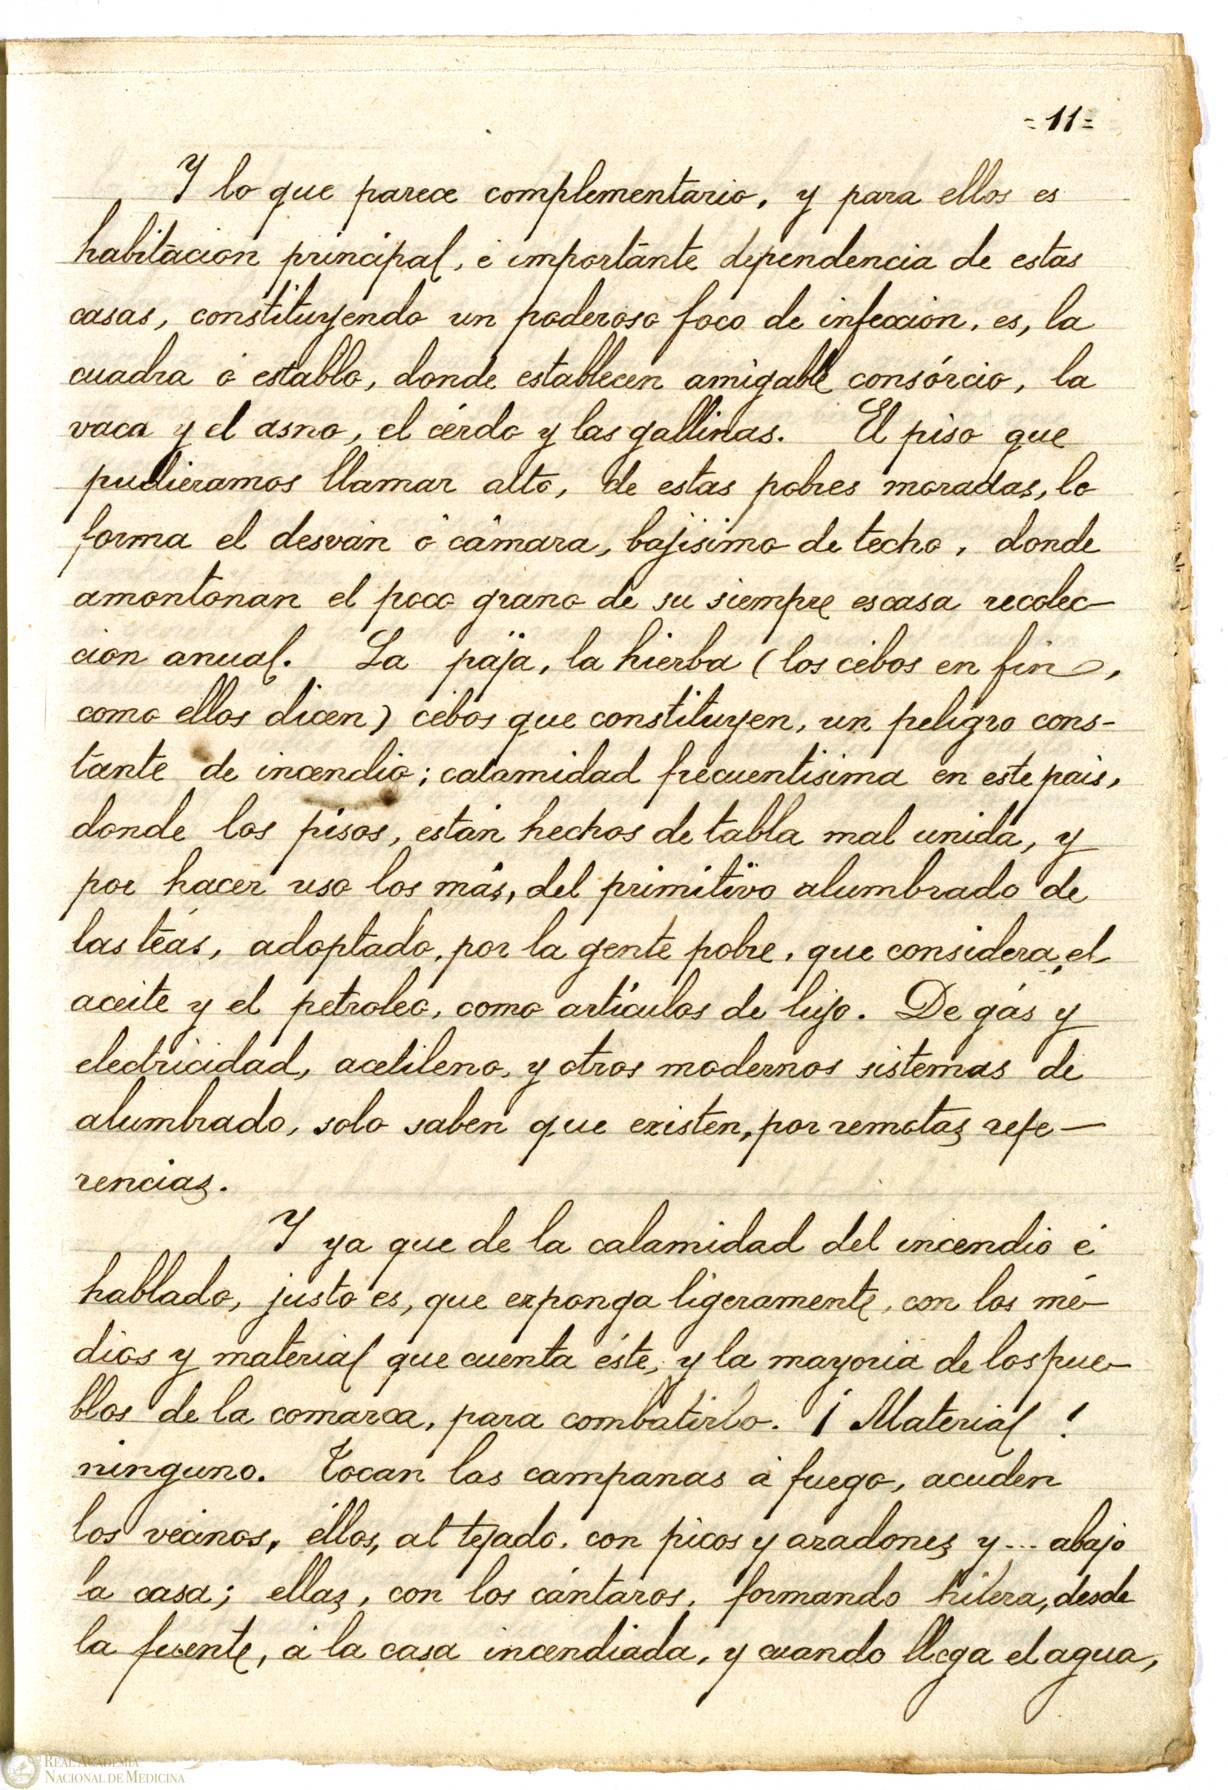 =11=
Y lo que parece complementario, y para ellos es
habitacion principal, é importante dependencia de estas
casas, constituyendo un poderoso foco de infeccion, es, la
cuadra ó establo, donde establecen amigable consórcio, la
vaca y el asno, el cérdo y las gallinas. El piso que
pudieramos llamar alto, de estas pobres moradas, lo
forma el desván ó cámara, bajisimo de techo, donde
amontonan el poco grano de su siempre escasa recolec-
cion anual. La paja, la hierba (los cebos en fin,
como ellos dicen) cebos que constituyen, un peligro cons-
tante de incendio; calamidad frecuentisima en este pais,
donde los pisos, están hechos de tabla mal unida, y
por hacer uso los más, del primitivo alumbrado de
las teás, adoptado, por la gente pobre, que considera, el
aceite y el petroleo, como artículos de lujo. De gás y
electricidad, acetileno, y otros modernos sistemas de
alumbrado, solo saben que existen, por remotas refe-
rencias.
Y ya que de la calamidad del incendio é
hablado, justo es, que exponga ligeramente, con los mé-
dios y material que cuenta éste, y la mayoria de los pue-
blos de la comarca, para combatirlo. ¡Material!
ninguno. Tocan las campanas á fuego, acuden
los vecinos, éllos, al tejado, con picos y azadones y... abajo
la casa; ellas, con los cántaros, formando hilera, desde
la fuente, á la casa incendiada, y cuando llega el agua,
REAL ACADEMIA
NACIONAL DE MEDICINA